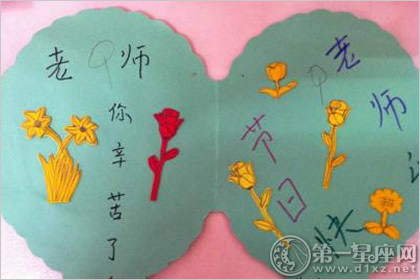 老师
你辛苦了
老师
节日快
第一星座网
www.d1xz.net